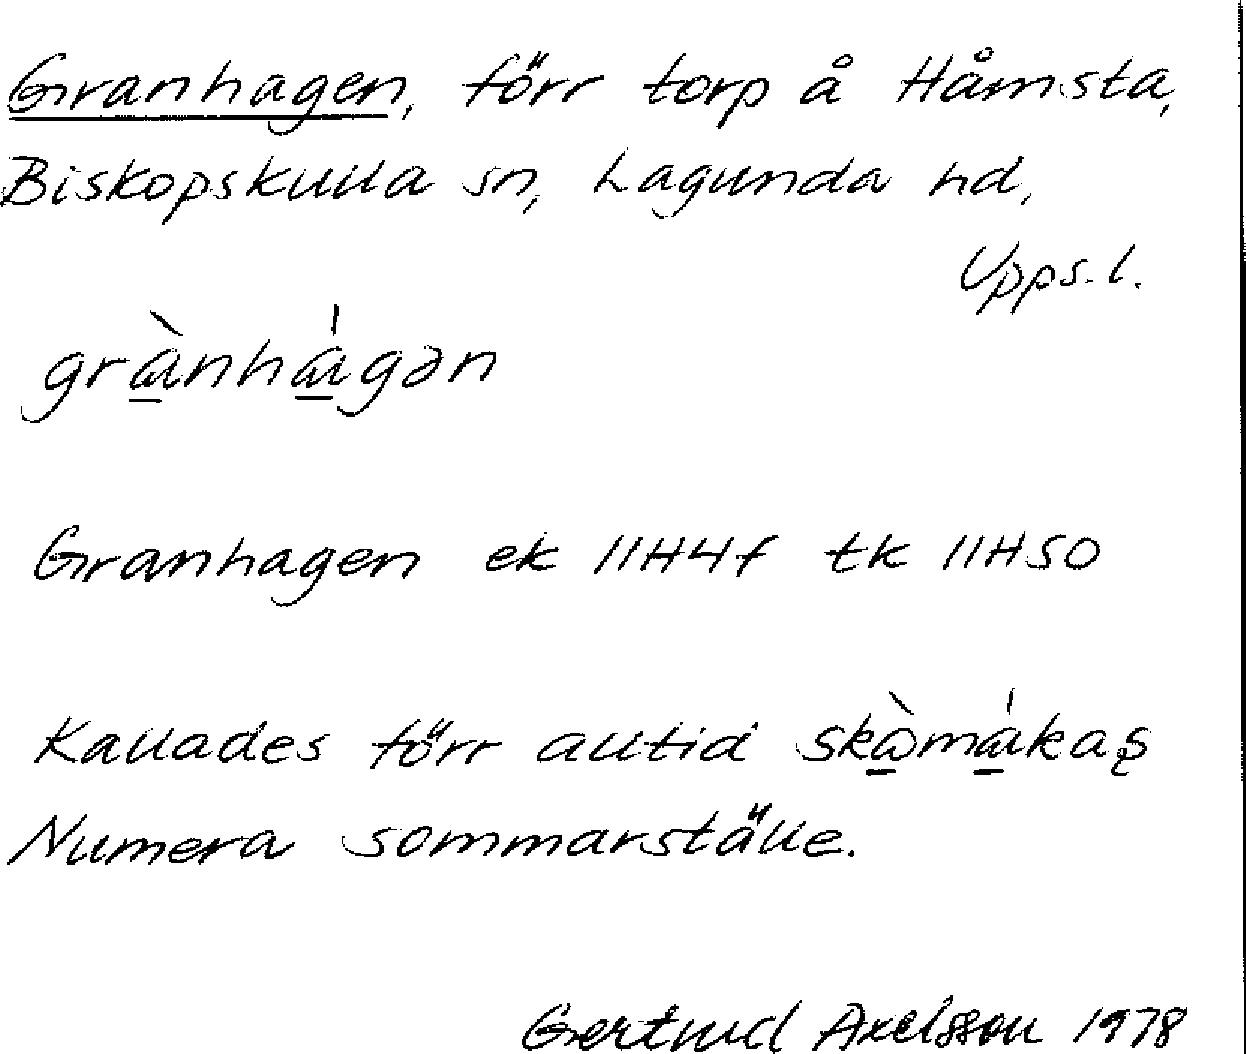 Granhagen, förr torp å Håmsta,
Biskopskulla sn, Lagunda hd,
Upps. l.
grànhágən
Granhagen ek 11H4f tk 11H50
Kallades förr alltid
Numera sommarställe.
Gertrud Axelsson 1978